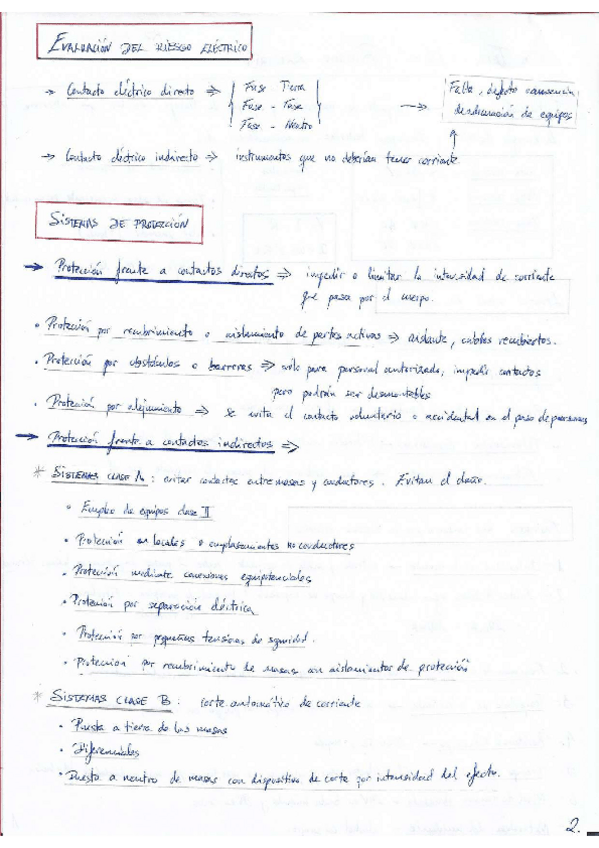 EVALUACIÓN DEL RIESGO ELÉCTRICO
→ Contacto eléctrico directo ⇒ Fase Tierra
Fase - Fase
Fase - Neutro
→ Falla, defecto
de adecuación de equipos
→ Contacto eléctrico indirecto ⇒ instrumentos que no deberían tener corriente
SISTEMAS DE PROTECCIÓN
→ Protección frente a contactos directos ⇒ impedir o limitar la intensidad de corriente
que pasa por el cuerpo.
• Protección por recubrimiento o aislamiento de partes activas ⇒ aislante, cables recubiertos.
• Protección por obstáculos o barreras ⇒ sólo para personal autorizado, impedir contactos
pero podrán ser desmontables
• Protección por alejamiento ⇒ se evita el contacto voluntario o accidental en el paso de personas
→ Protección frente a contactos indirectos ⇒
* SISTEMAS CLASE A: evitar contactos entre masas y conductores. Evitan el daño.
• Empleo de equipos clase II
• Protección en locales o emplazamientos no conductores
• Protección mediante conexiones equipotenciales
• Protección por separación eléctrica
• Protección por pequeñas tensiones de seguridad.
• Protección por recubrimiento de masas con aislamientos de protección
* SISTEMAS CLASE B: corte automático de corriente
• Puesta a tierra de las masas
• Diferenciales
• Puesta a neutro de masas con dispositivo de corte por intensidad del efecto.
2.